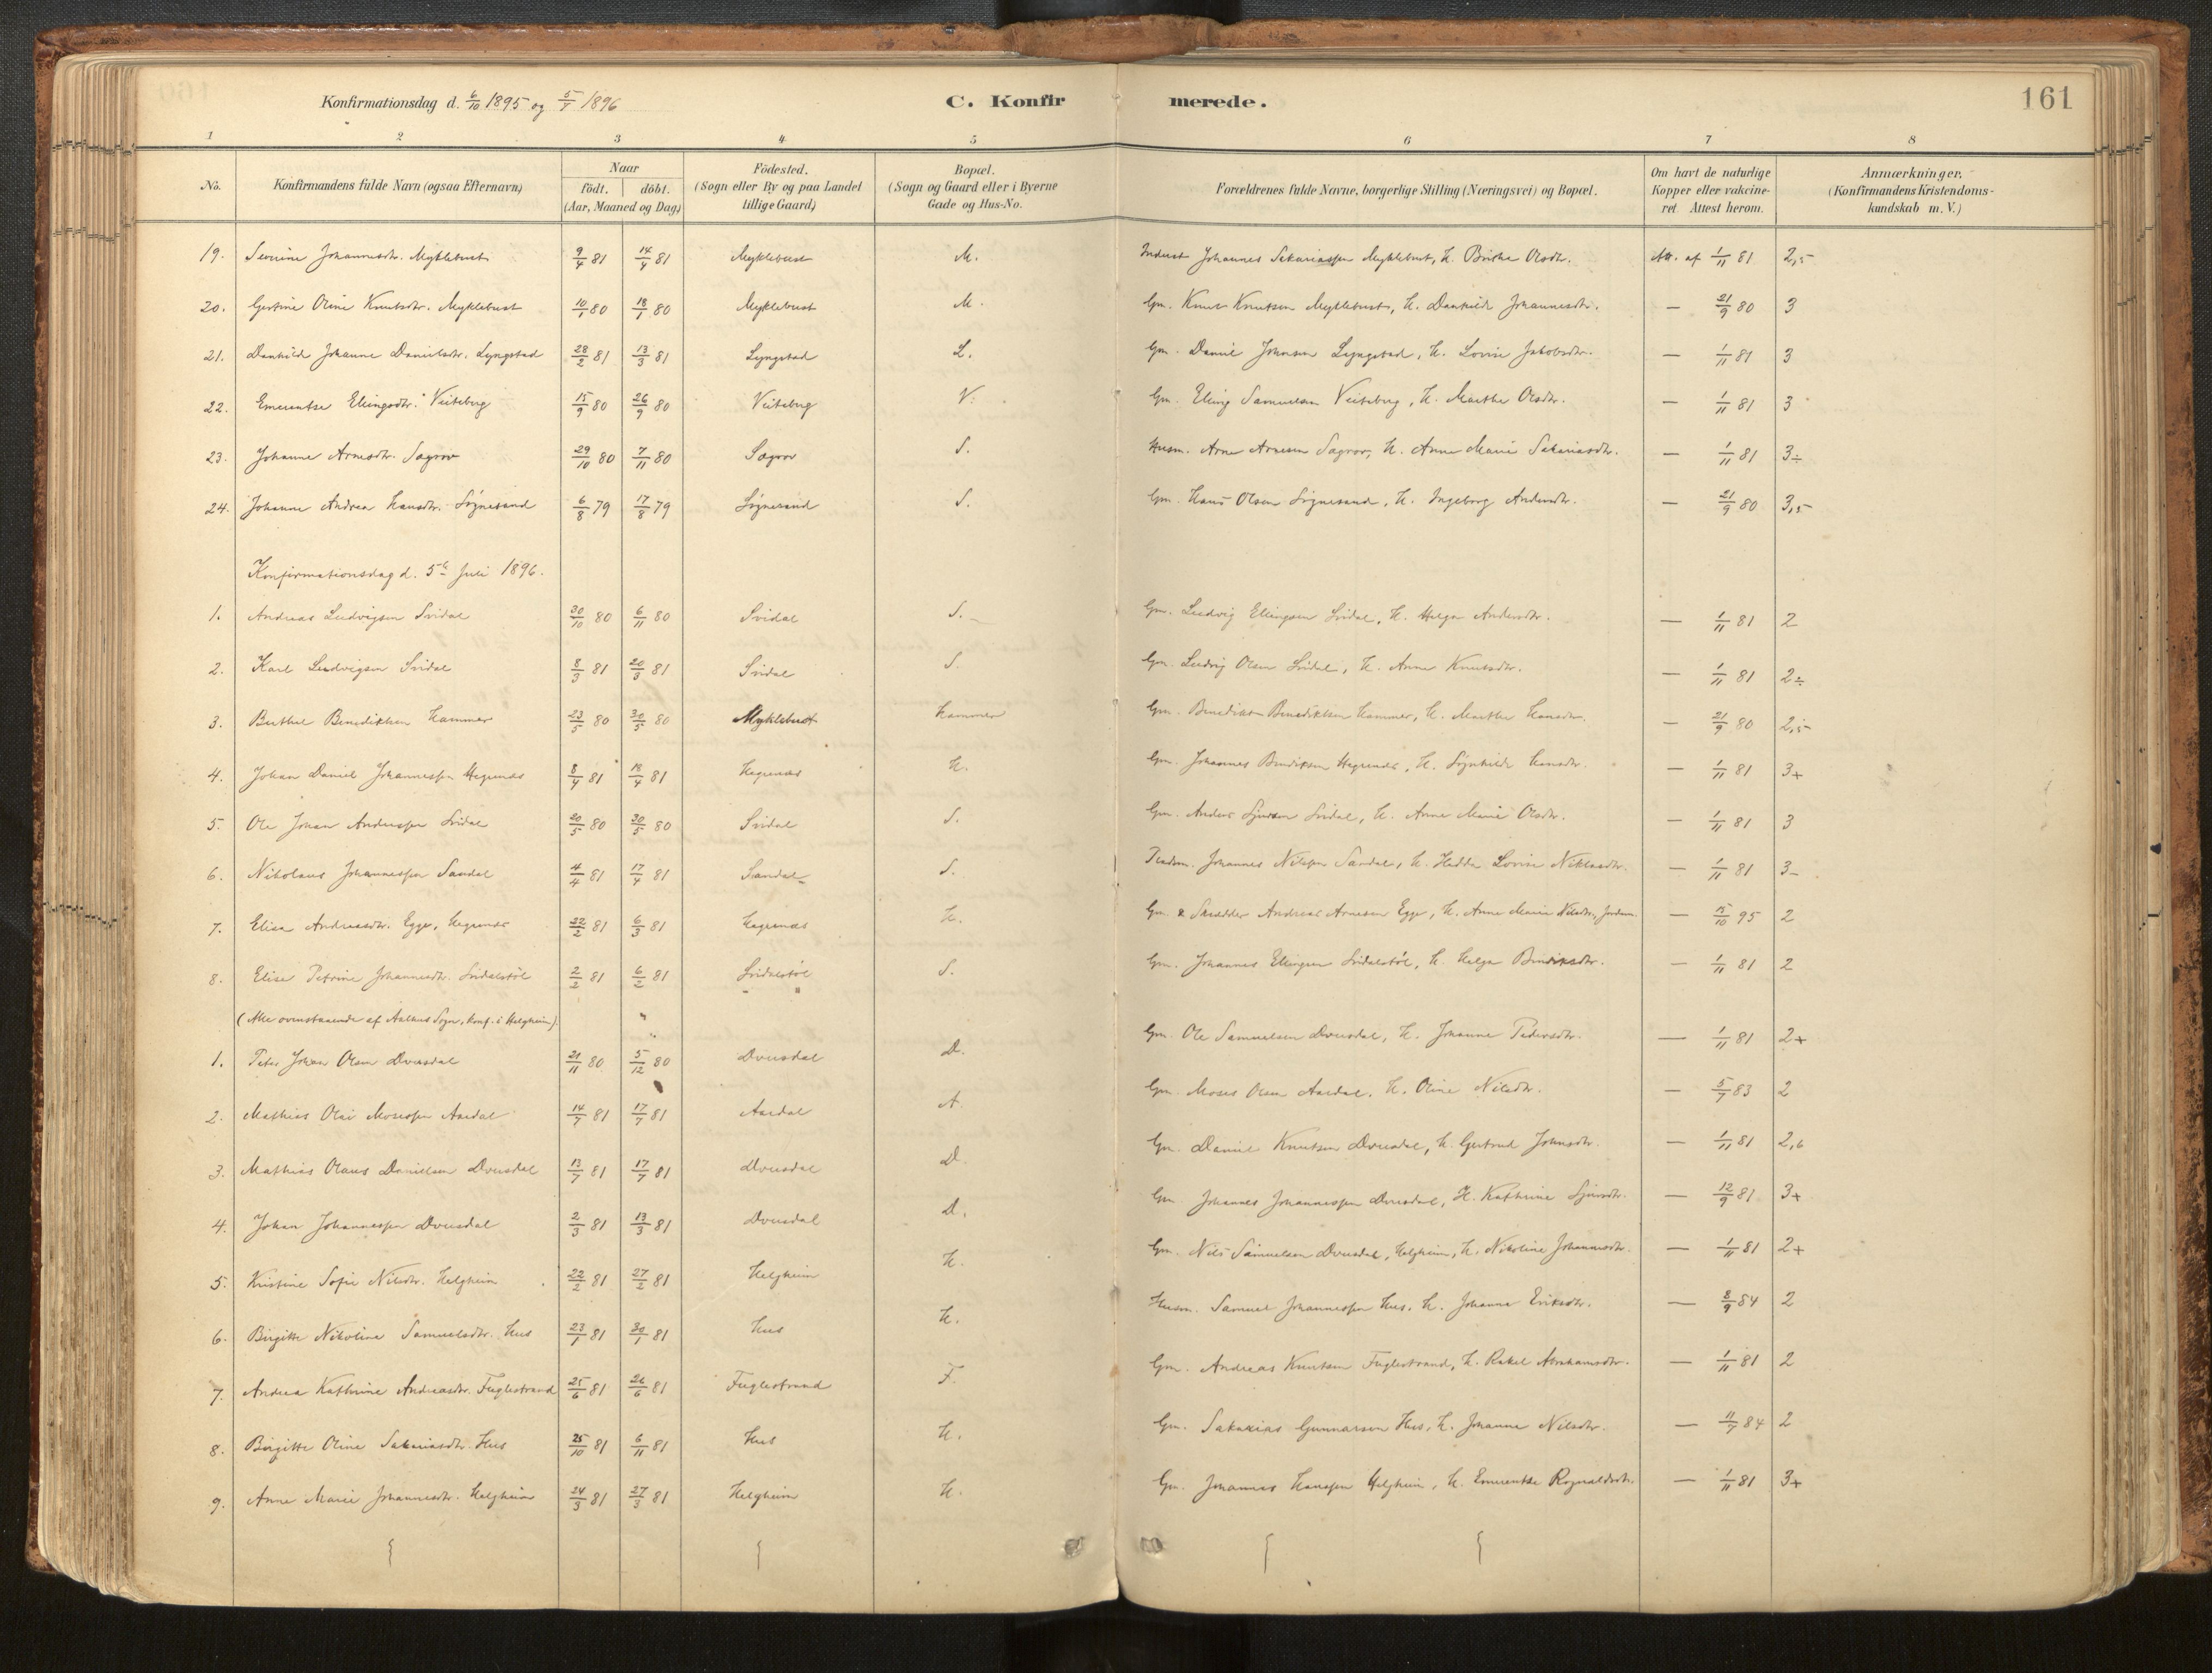 Konfirmationsdag d. 6/10 1895 og 5/7 1896
C. Konfirmerede.
161
1 2 3 4 5 6 7 8
No. Konfirmandens fulde Navn (ogsaa Efternavn) Naar födt. döbt. (Aar, Maaned og Dag) Födested. (Sogn eller By og paa Landet tillige Gaard) Bopæl. (Sogn og Gaard eller i Byerne Gade og Hus-No. Forældrenes fulde Navne, borgerlige Stilling (Næringsvei) og Bopæl. Om havt de naturlige Kopper eller vakcineret. Attest herom. Anmærkninger. (Konfirmandens Kristendomskundskab m. V.)
19. Severine Johannesdtr. Myklebust 9/4 81 14/4 81 Myklebust M. Inderst Johannes Sakariassen Myklebust, H. Olsdtr. Att. af 1/11 81 2,5
20. Gertine Oline Knutsdtr. Myklebust 10/1 80 18/1 80 Myklebust M. Gm. Knut Knutsen Myklebust, H. Dankilde Johannesdtr. — 21/9 80 3
21. Dankilde Johanne Danielsdtr. Lyngstad 28/2 81 13/3 81 Lyngstad L. Gm. Daniel Johnsen Lyngstad, H. Lovise Jakobsdtr. — 1/11 81 3
22. Emerentse Ellingsdtr. Veiteberg 15/9 80 26/9 80 Veiteberg V. Gm. Elling Samuelsen Veiteberg, H. Marthe Olsdtr. — 1/11 81 3
23. Johanne Arnesdtr. Sagrov 29/10 80 7/11 80 Sagrov S. Husm. Arne Arnesen Sagrov, H. Anne Marie Sakariasdtr. — 1/11 81 3÷
24. Johanne Andrea Hansdtr. Sögnesand 6/8 79 17/8 79 Sögnesand S. Gm. Hans Olsen Sögnesand, H. Ingeborg Andersdtr. — 21/9 80 3,5
Konfirmationsdag d. 5te Juli 1896.
1. Andreas Ludvigsen Svidal 30/10 80 6/11 80 Svidal S. Gm. Ludvig Ellingsen Svidal, H. Helga Andersdtr. — 1/11 81 2
2. Karl Ludvigsen Svidal 8/3 81 20/3 81 Svidal S. Gm. Ludvig Olsen Svidal, H. Anne Knutsdtr. — 1/11 81 2÷
3. Berthel Benediktsen Hammer 23/5 80 30/5 80 Myklebust Hammer Gm. Benedikt Benediktsen Hammer, H. Marthe Hansdtr. — 21/9 80 2,5
4. Johan Daniel Johannessen Hegrenæs 8/4 81 18/4 81 Hegrenæs H. Gm. Johannes Bendiksen Hegrenæs, H. Hansdtr. — 1/11 81 3+
5. Ole Johan Anderssen Svidal 20/5 80 30/5 80 Svidal S. Gm. Anders Sjursen Svidal, H. Anne Marie Olsdtr. — 1/11 81 3
6. Nikolaus Johannessen Sandal 4/4 81 17/4 81 Sandal S. Johannes Nilssen Sandal, H. Hedda Lovise Niklasdtr. — 1/11 81 3-
7. Elisa Andreasdtr. Egge, Hegrenæs 22/2 81 6/3 81 Hegrenæs H. Gm. & Skrædder Andreas Arnesen Egge, H. Anne Marie Nilsdtr. — 15/10 95 2
8. Elise Petrine Johannesdtr. Svidalstöl 2/2 81 6/2 81 Svidalstöl S. Gm. Johannes Ellingsen Svidalstöl, H. Helga Bendiksdtr. — 1/11 81 2
(Alle ovenstaaende af Aalhus Sogn, konf. i Helgheim).
1. Peter Johan Olsen Dvergsdal 21/11 80 5/12 80 Dvergsdal D. Gm. Ole Samuelsen Dvergsdal, H. Johanne Pedersdtr. — 1/11 81 2+
2. Mathias Olai Mosessen Aardal 14/7 81 17/7 81 Aardal A. Gm. Moses Olsen Aardal, H. Oline Nilsdtr. — 5/7 83 2
3. Mathias Olaus Danielsen Dvergsdal 13/7 81 17/7 81 Dvergsdal D. Gm. Daniel Knutsen Dvergsdal, H. Gertrud Johnsdtr. — 1/11 81 2,6
4. Johan Johannessen Dvergsdal 2/3 81 13/3 81 Dvergsdal D. Gm. Johannes Johannessen Dvergsdal, H. Kathrine Sjursdtr. — 12/9 81 3+
5. Kristine Sofie Nilsdtr. Helgheim 22/2 81 27/2 81 Helgheim H. Gm. Nils Samuelsen Dvergsdal, Helgheim, H. Nikoline Johannesdtr. — 1/11 81 2+
6. Birgitte Nikoline Samuelsdtr. Hus 23/1 81 30/1 81 Hus H. Husm. Samuel Johannessen Hus, H. Johanne Eriksdtr. — 8/9 84 2
7. Andrea Kathrine Andreasdtr. Fuglestrand 25/6 81 26/6 81 Fuglestrand F. Gm. Andreas Knutsen Fuglestrand, H. Rakel Abrahamsdtr. — 1/11 81 2
8. Birgitte Oline Sakariasdtr. Hus 25/10 81 6/11 81 Hus H. Gm. Sakarias Gunnarson Hus, H. Johanne Nilsdtr. — 11/7 84 2
9. Anne Marie Johannesdtr. Helgheim 24/3 81 27/3 81 Helgheim H. Gm. Johannes Hanssen Helgheim, H. Emerentse Rognaldsdtr. — 1/11 81 3+